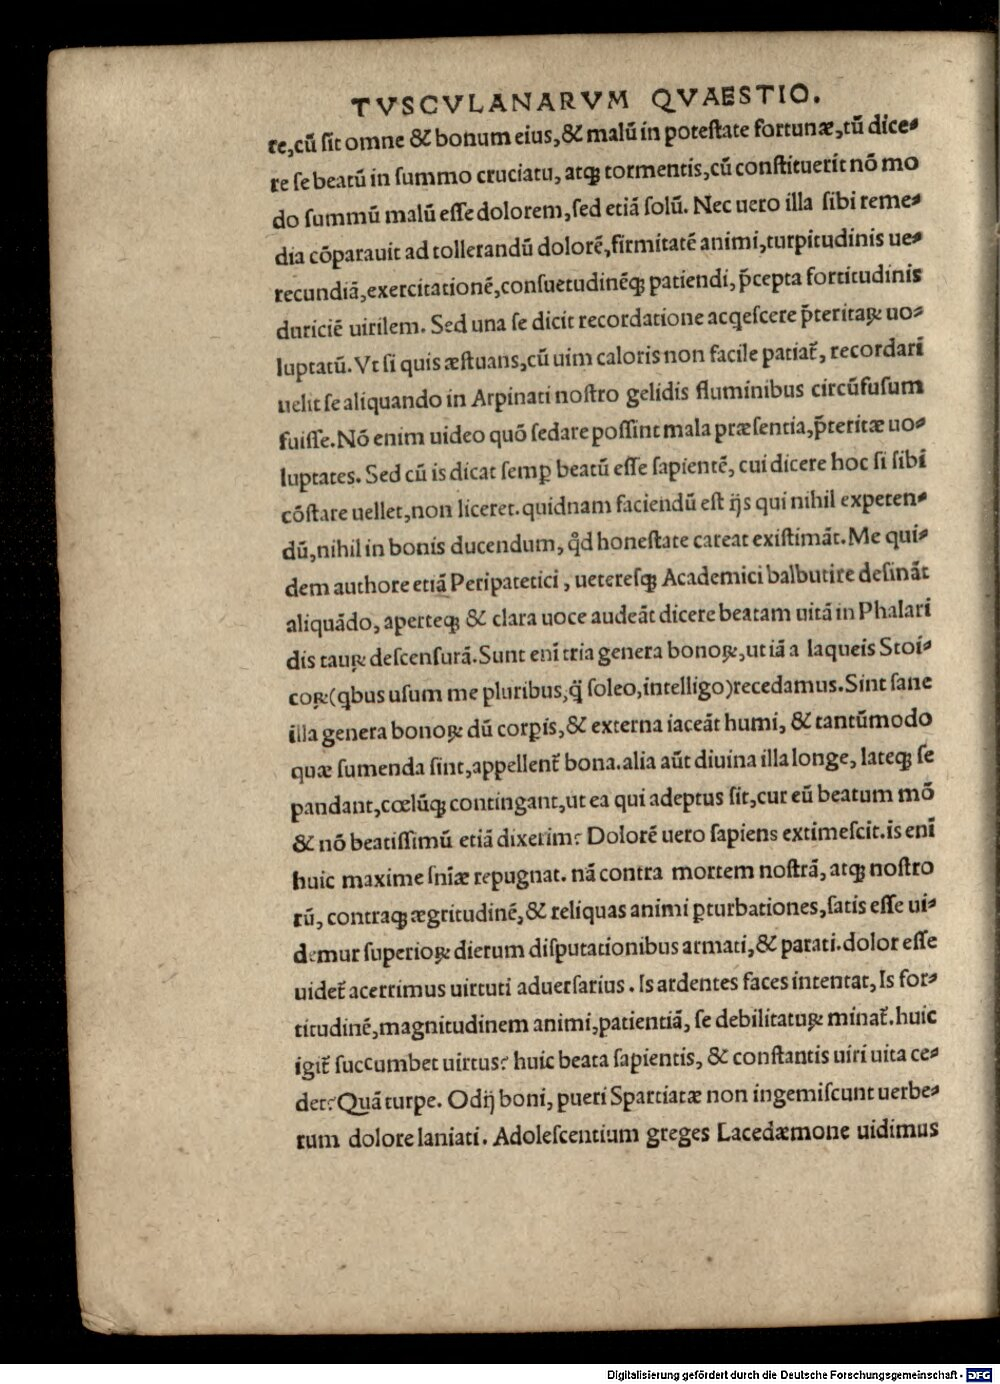 TVSCVLANARVM QVAESTIO.
re,cũ ſit omne & bonum eius,& malũ in poteſtate fortunæ,tũ dice⸗
re ſe beatũ in ſummo cruciatu, atqꝫ tormentis,cũ conſtituerit nõ mo
do ſummũ malũ eſſe dolorem,ſed etiã ſolũ. Nec uero illa ſibi reme⸗
dia cõparauit ad tollerandũ dolorẽ,firmitatẽ animi,turpitudinis ue⸗
recundiã,exercitationẽ,conſuetudinẽqꝫ patiendi, p̃cepta fortitudinis
duriciẽ uirilem. Sed una ſe dicit recordatione acqeſcere p̃teritaꝝ uo⸗
luptatũ. Vt ſi quis æſtuans,cũ uim caloris non facile patiat̃, recordari
uelit ſe aliquando in Arpinati noſtro gelidis fluminibus circũfuſum
fuiſſe. Nõ enim uideo quõ ſedare poſſint mala præſentia,p̃teritæ uo⸗
luptates. Sed cũ is dicat ſemꝑ beatũ eſſe ſapientẽ, cui dicere hoc ſi ſibi
cõſtare uellet,non liceret. quidnam faciendũ eſt ijs qui nihil expeten⸗
dũ,nihil in bonis ducendum, qd̃ honeſtate careat exiſtimãt. Me qui⸗
dem authore etiã Peripatetici, uetereſqꝫ Academici balbutire deſinãt
aliquãdo, aperteqꝫ & clara uoce audeãt dicere beatam uitã in Phalari
dis tauꝝ deſcenſurã. Sunt enĩ tria genera bonoꝝ,ut iã a laqueis Stoi⸗
coꝝ(qbus uſum me pluribus,q̃ ſoleo,intelligo)recedamus. Sint ſane
illa genera bonoꝝ dũ corꝑis,& externa iaceãt humi, & tantũmodo
quæ ſumenda ſint,appellent̃ bona. alia aũt diuina illa longe, lateqꝫ ſe
pandant,cœlũqꝫ contingant,ut ea qui adeptus ſit,cur eũ beatum mõ
& nõ beatiſſimũ etiã dixerim? Dolorẽ uero ſapiens extimeſcit. is enĩ
huic maxime ſñiæ repugnat. nã contra mortem noſtrã, atqꝫ noſtro
rũ, contraqꝫ ægritudinẽ,& reliquas animi ꝑturbationes,ſatis eſſe ui⸗
demur ſuperioꝝ dierum diſputationibus armati,& parati. dolor eſſe
uidet̃ acerrimus uirtuti aduerſarius. Is ardentes faces intentat, Is for⸗
titudinẽ,magnitudinem animi,patientiã, ſe debilitatuꝝ minat̃. huic
igit̃ ſuccumbet uirtus? huic beata ſapientis, & conſtantis uiri uita ce⸗
det? Quã turpe. O dij boni, pueri Spartiatæ non ingemiſcunt uerbe⸗
rum dolore laniati. Adoleſcentium greges Lacedæmone uidimus
Digitalisierung gefördert durch die Deutsche Forschungsgemeinschaft - DFG